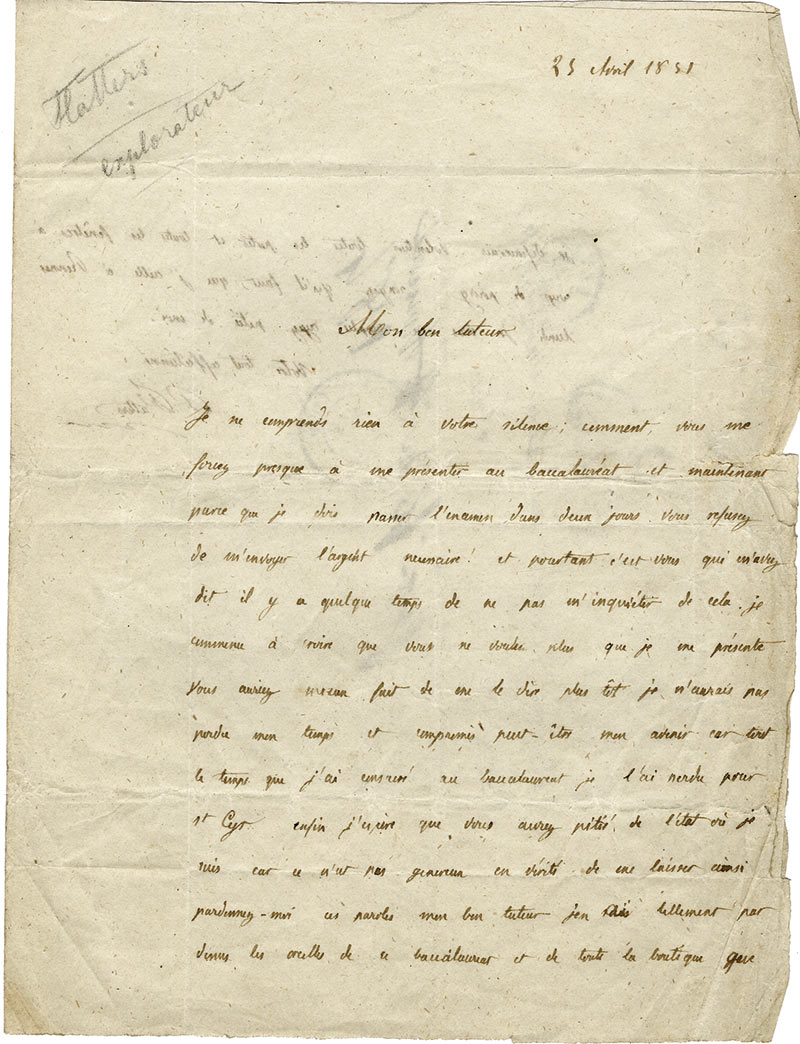 Flatters
explorateur
25 Avril 1851
Mon bon tuteur
Je ne comprends rien à votre silence ; comment, vous me
forcez presque à me présenter au baccalauréat et maintenant
parce que je dois passer l'examen dans deux jours vous refusez
de m'envoyer l'argent necessaire ! et pourtant c'est vous qui m'avez
dit il y a quelque temps de ne pas m'inquiéter de cela. je
commence à croire que vous ne voulez plus que je me présente
vous auriez mieux fait de me le dire plus tôt je n'aurais pas
perdu mon temps et compromis peut-être mon avenir car tout
le temps que j'ai consacré au baccalaureat je l'ai perdu pour
st Cyr. enfin j'espère que vous aurez pitié de l'état où je
suis car ce n'est pas genereux en vérité de me laisser ainsi
pardonnez-moi ces paroles mon bon tuteur j'en ai tellement par
dessus les oreilles de ce baccalaureat et de toute la boutique que